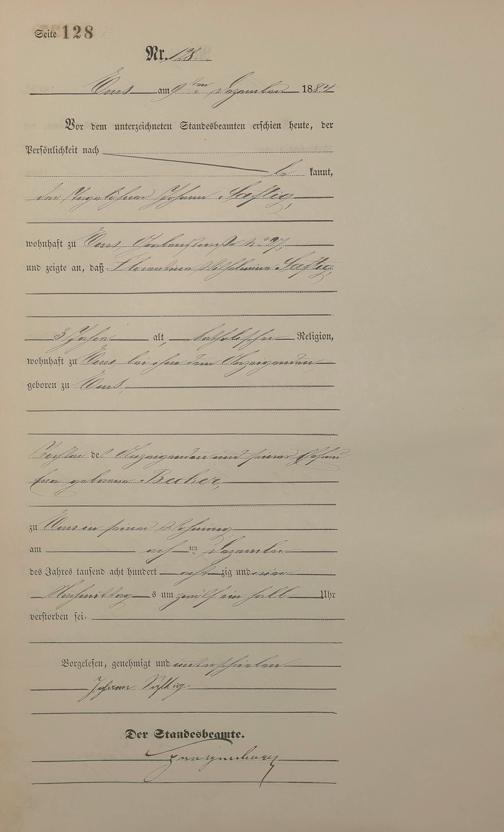 Seite 128
Nr. 128
Ems am 9ten Dezember 1884
Vor dem unterzeichneten Standesbeamten erschien heute, der
Persönlichkeit nach
be kannt,
der Johann Saftig,
wohnhaft zu Ems,
und zeigte an, daß Florentina Wilhelmina Saftig,
3 Jahre alt, katholischer Religion,
wohnhaft zu Ems bei ihm dem Anzeigenden
geboren zu Ems,
Tochter des Anzeigenden und seiner Ehefrau
geborene Becker,
zu Ems in seiner Wohnung
am acht ten Dezember
des Jahres tausend acht hundert achtzig und vier
Nachmittags um zwölf ein halb Uhr
verstorben sei.
Vorgelesen, genehmigt und unterschrieben
Johann Saftig.
Der Standesbeamte.